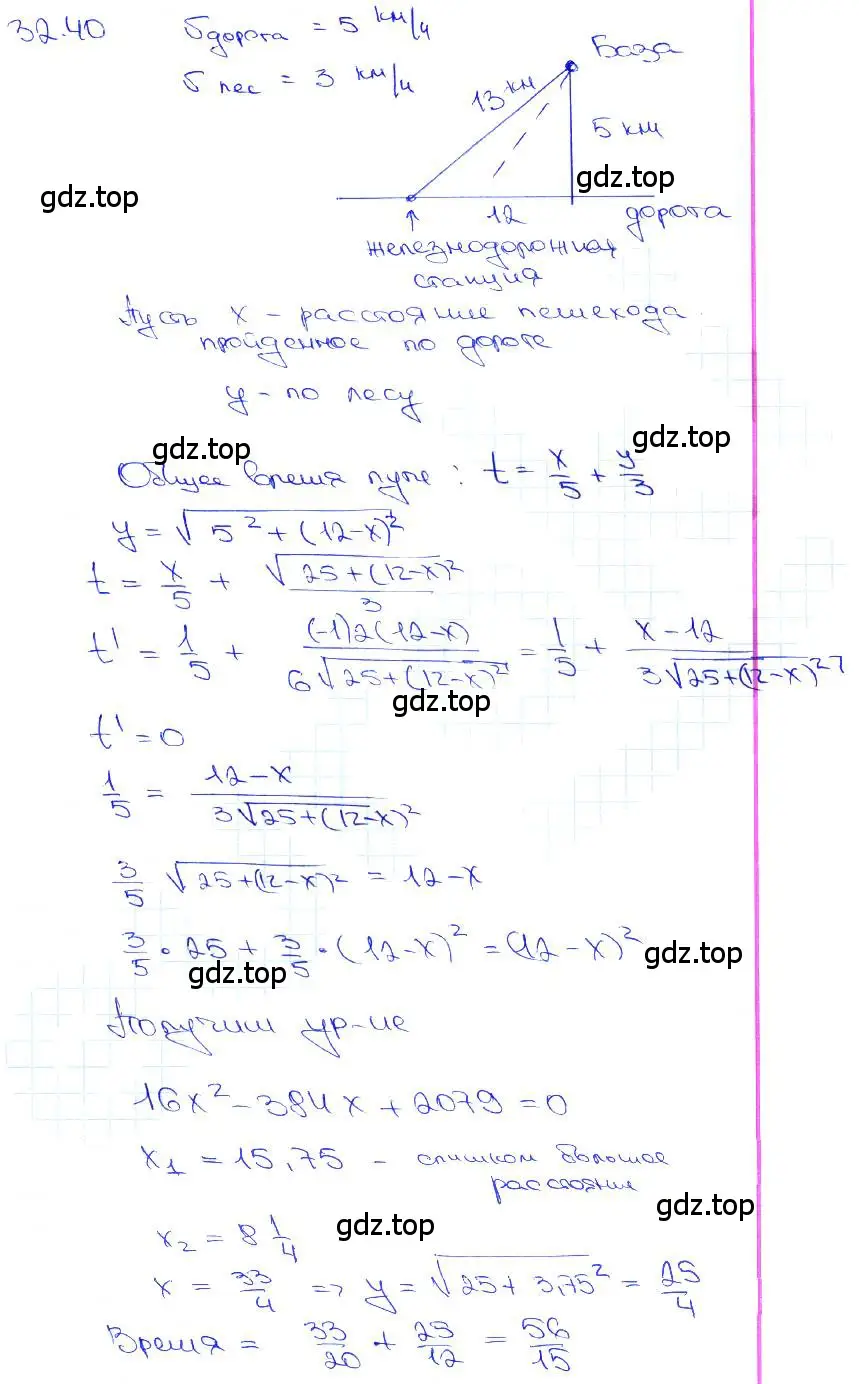 32.40 υ дорога = 5 км/ч
υ лес = 3 км/ч
База
13 км
5 км
gdz.top
gdz.top
12
дорога
железнодорожная
станция
Пусть x - расстояние пешехода
пройденное по дороге
y - по лесу
gdz.top
gdz.top
Общее время пути: t = x/5 + y/3
y = √(5² + (12-x)²)
t = x/5 + √(25+(12-x)²)/3
t' = 1/5 + (-1)2(12-x)/(6√(25+(12-x)²)) = 1/5 + (x-12)/(3√(25+(12-x)²))
gdz.top
t' = 0
1/5 = (12-x)/(3√(25+(12-x)²))
3/5 √(25+(12-x)²) = 12-x
3/5 · 25 + 3/5 · (12-x)² = (12-x)²
gdz.top
gdz.top
Получим ур-ие
16x² - 384x + 2079 = 0
x₁ = 15,75 - слишком большое
расстояние
gdz.top
gdz.top
x₂ = 8 1/4
x = 33/4 => y = √(25 + 3,75²) = 25/4
Время = 33/20 + 25/12 = 56/15